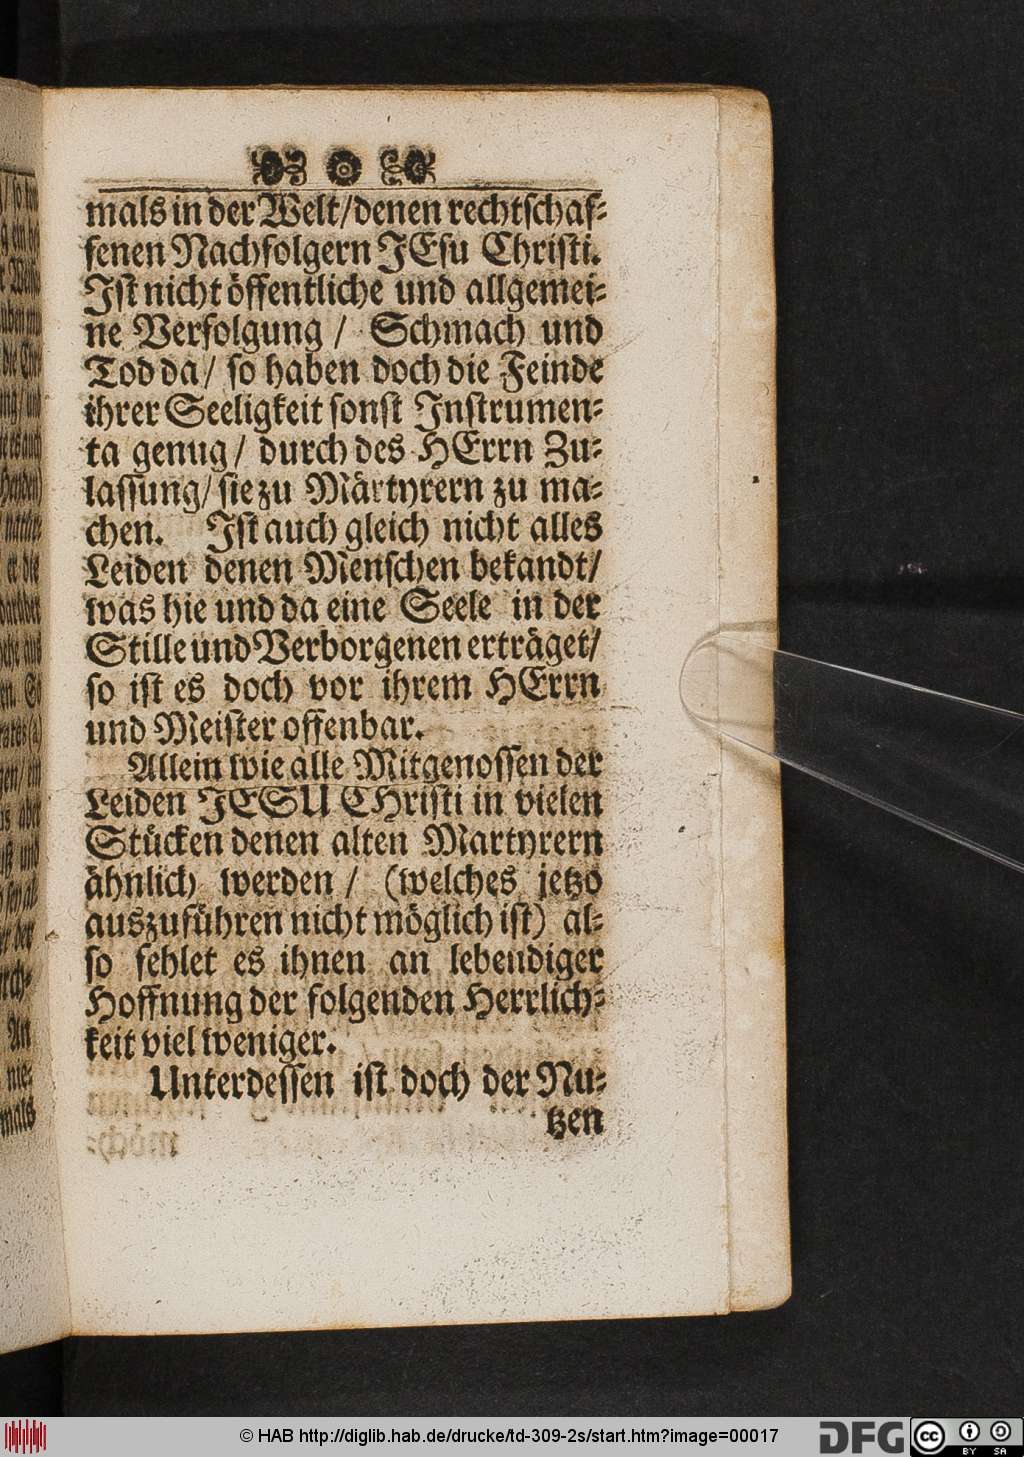 mals in der Welt/denen rechtschaf-
fenen Nachfolgern JEsu Christi.
Ist nicht öffentliche und allgemei-
ne Verfolgung / Schmach und
Tod da/ so haben doch die Feinde
ihrer Seeligkeit sonst Instrumen-
ta genug/ durch des HErrn Zu-
lassung/ sie zu Märtyrern zu ma-
chen. Ist auch gleich nicht alles
Leiden denen Menschen bekandt/
was hie und da eine Seele in der
Stille und Verborgenen erträget/
so ist es doch vor ihrem HErrn
und Meister offenbar.
Allein wie alle Mitgenossen der
Leiden JESU CHristi in vielen
Stücken denen alten Martyrern
ähnlich werden / (welches jetzo
auszuführen nicht möglich ist) al-
so fehlet es ihnen an lebendiger
Hoffnung der folgenden Herrlich-
keit viel weniger.
Unterdessen ist doch der Nu-
tzen
© HAB http://diglib.hab.de/drucke/td-309-2s/start.htm?image=00017
DFG
cc BY SA